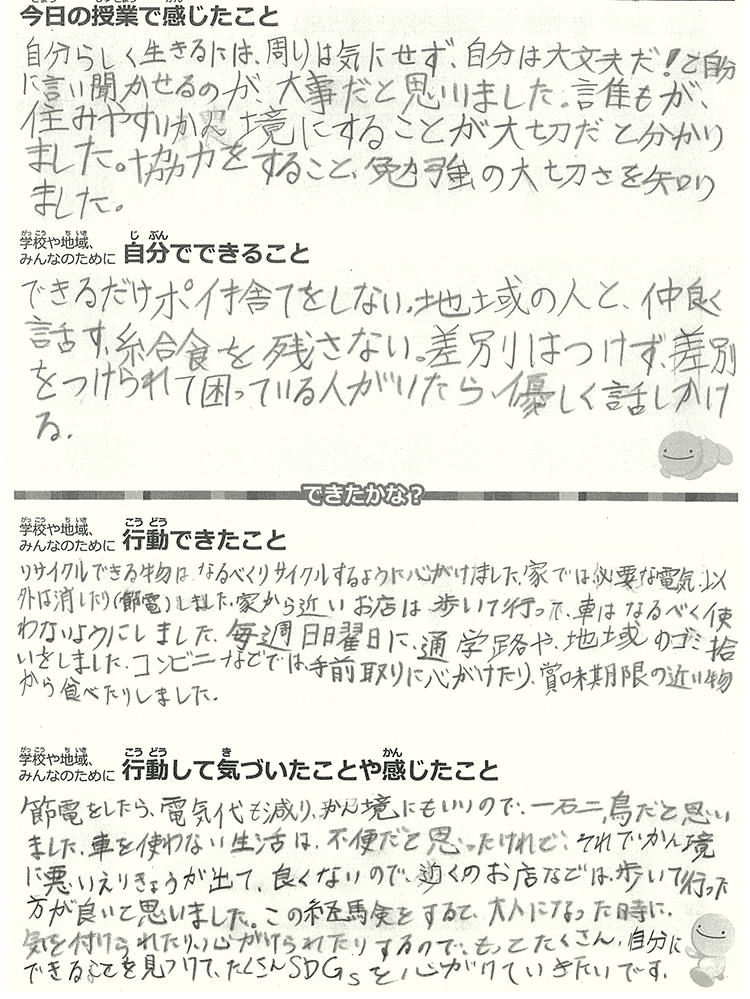 今日の授業で感じたこと
自分らしく生きるには、周りは気にせず、自分は大丈夫だ!と自分
に言い聞かせるのが、大事だと思いました。誰もが、
住みやすいかん境にすることが大切だと分かり
ました。協力をすること、勉強の大切さを知り
ました。
学校や地域、
みんなのために 自分でできること
できるだけポイ捨てをしない。地域の人と、仲良く
話す。給食を残さない。差別はつけず、差別
をつけられて困っている人がいたら優しく話しかけ
る。
できたかな?
学校や地域、
みんなのために 行動できたこと
リサイクルできる物は、なるべくリサイクルするように心がけました。家では、必要な電気以
外は消したり(節電)しました。家から近いお店は歩いて行って、車はなるべく使
わないようにしました。毎週日曜日に、通学路や、地域のゴミ拾
いをしました。コンビニなどでは、手前取りに心がけたり、賞味期限の近い物
から食べたりしました。
学校や地域、
みんなのために 行動して気づいたことや感じたこと
節電をしたら、電気代も減り、かん境にもいいので、一石二鳥だと思い
ました。車を使わない生活は、不便だと思ったけれど、それでかん境
に悪いえいきょうが出て、良くないので、近くのお店などは、歩いて行った
方が良いと思いました。この経験をすると、大人になった時に、
気を付けられたり、心がけられたりするので、もっとたくさん、自分に
できることを見つけて、たくさんSDGsを心がけていきたいです。